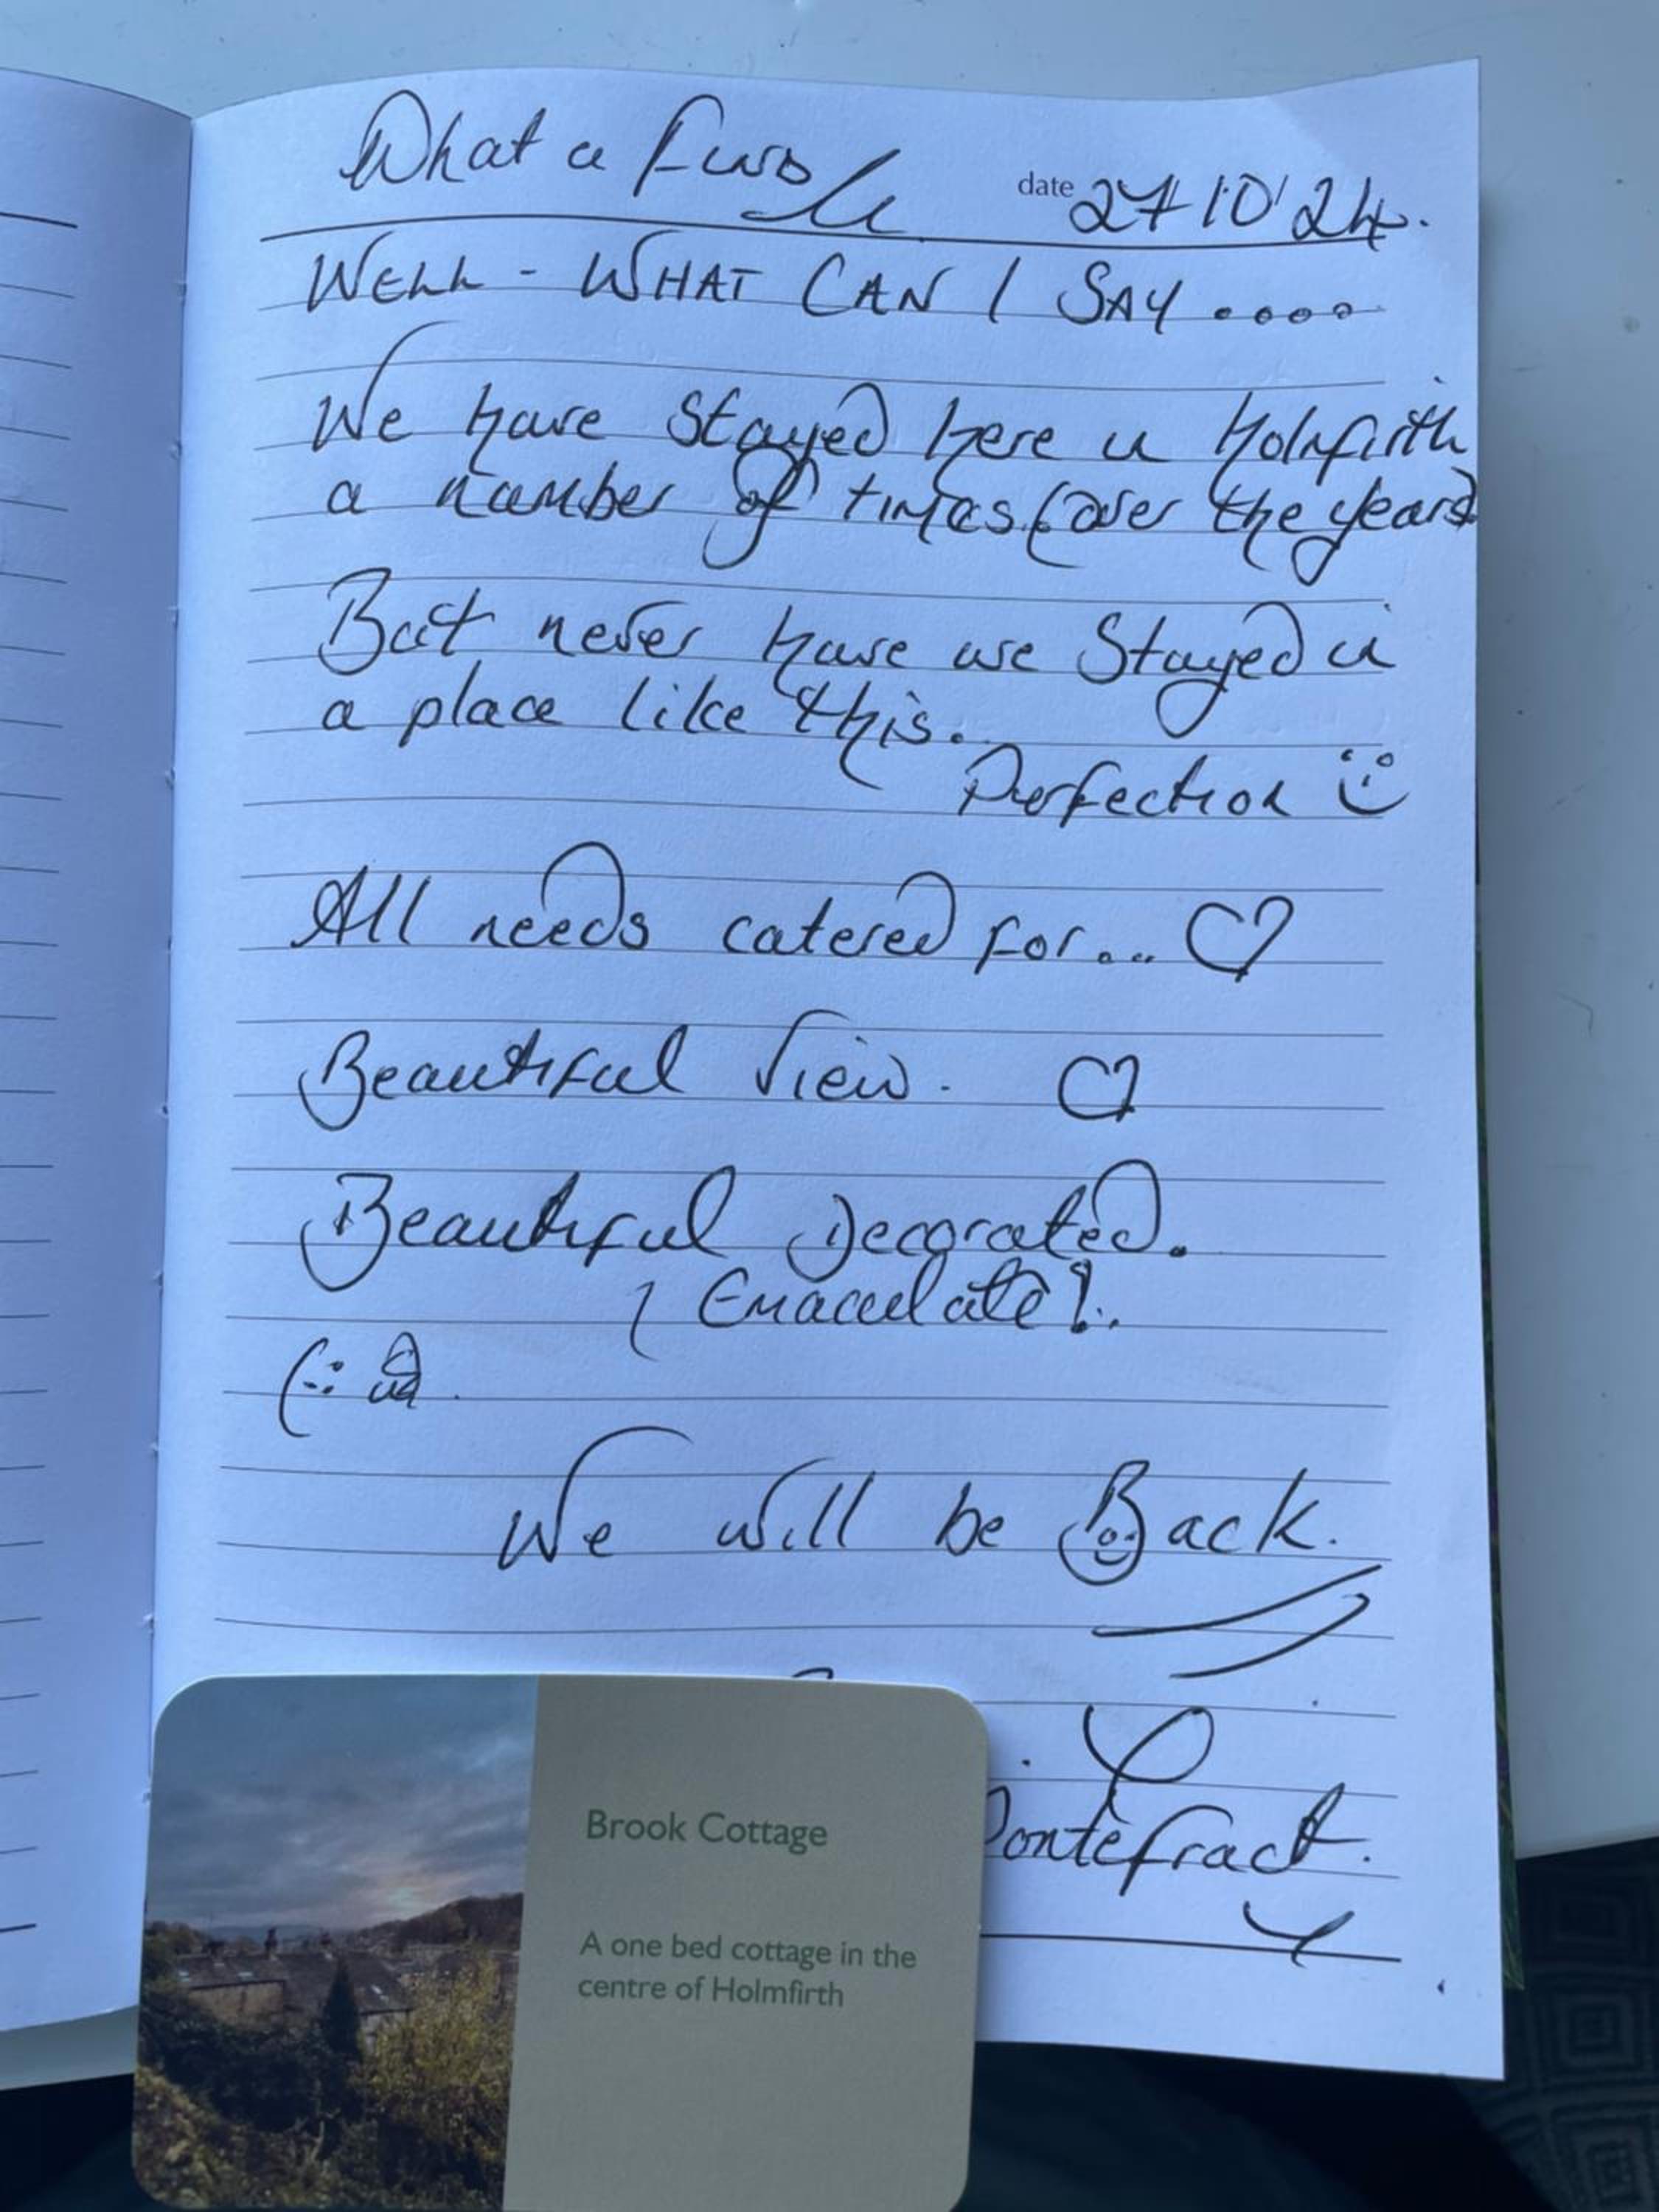 What a find
date 27 10 24.
WELL - WHAT CAN I SAY ....
We have stayed here in Holmfirth
a number of times (over the years)
But never have we Stayed in
a place like this.
Perfection
All needs catered for... ♡
Beautiful View. ♡
Beautiful Decorated.
( Emaculate!.
We will be Back.
Pontefract.
Brook Cottage
A one bed cottage in the
centre of Holmfirth